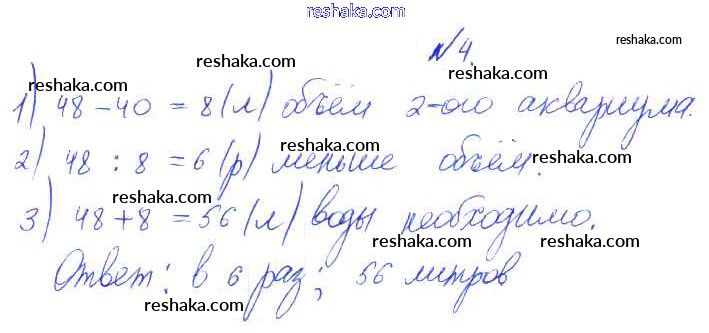 reshaka.com
№4.
reshaka.com
reshaka.com
reshaka.com
reshaka.com
1) 48 - 40 = 8 (л) объём 2-ого аквариума.
reshaka.com
2) 48 : 8 = 6 (р) меньше объём.
reshaka.com
reshaka.com
3) 48 + 8 = 56 (л) воды необходимо.
reshaka.com
reshaka.com
Ответ: в 6 раз; 56 литров
reshaka.com
reshaka.com